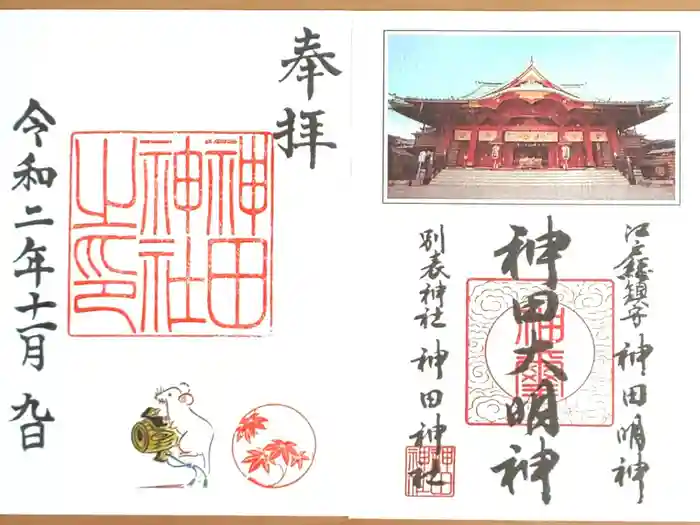 奉拝
神田
神社
之印
令和二年十一月 九日
江戸総鎮守 神田明神
神田大明神
別表神社 神田神社
神田
神社